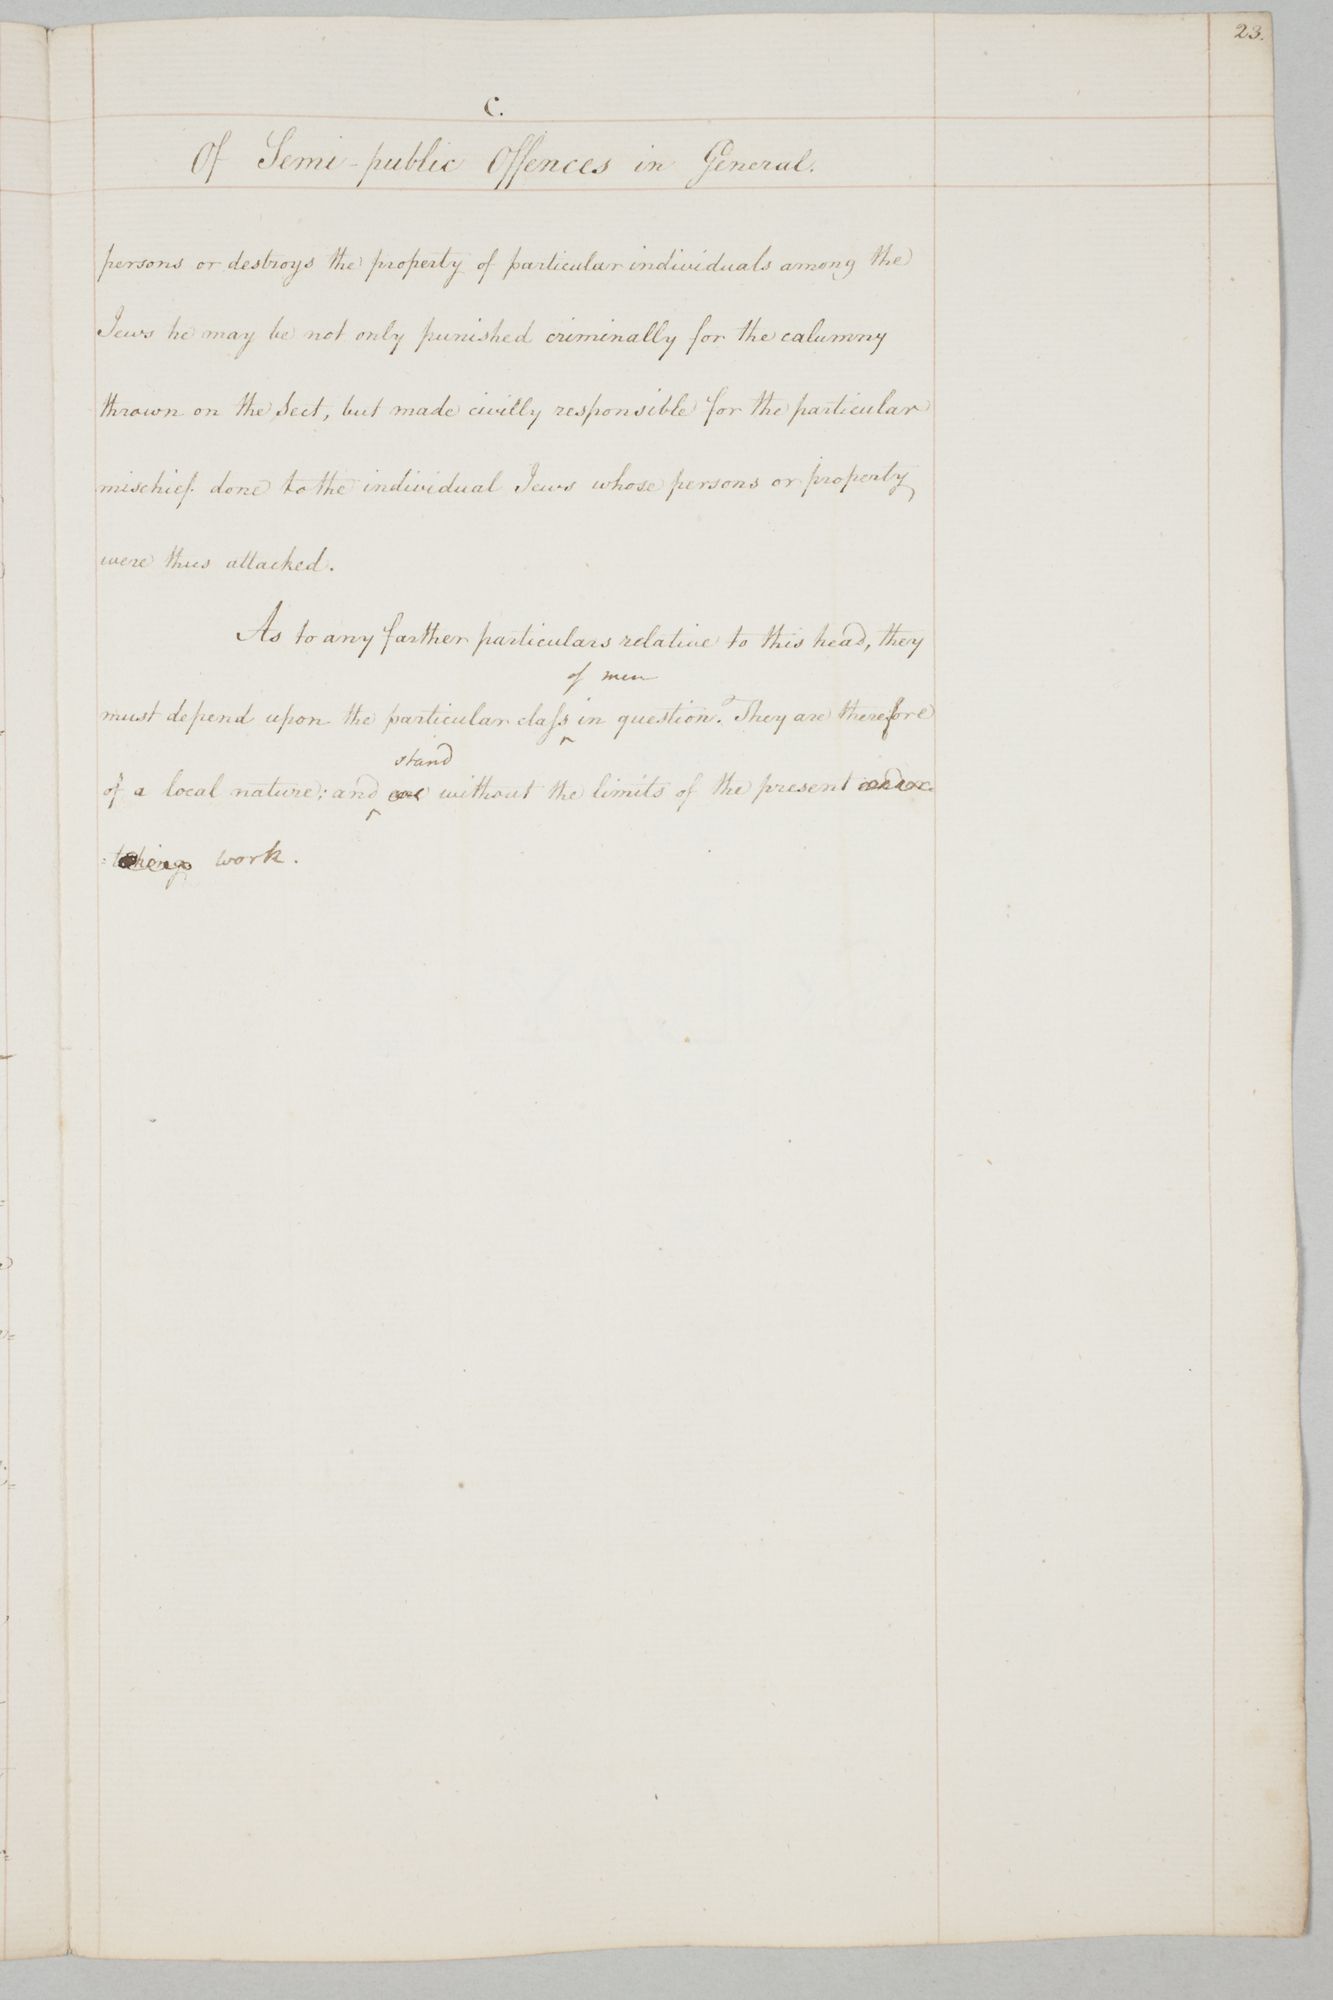 23.
C.
Of Semi-public Offences in General.
persons or destroys the property of particular individuals among the
Jews he may be not only punished criminally for the calumny
thrown on the Sect, but made civilly responsible for the particular
mischief done to the individual Jews whose persons or property
were thus attacked.
As to any farther particulars relative to this head, they
of men
must depend upon the particular class in question. They are therefore
stand
of a local nature; and are without the limits of the present under-
=taking work.